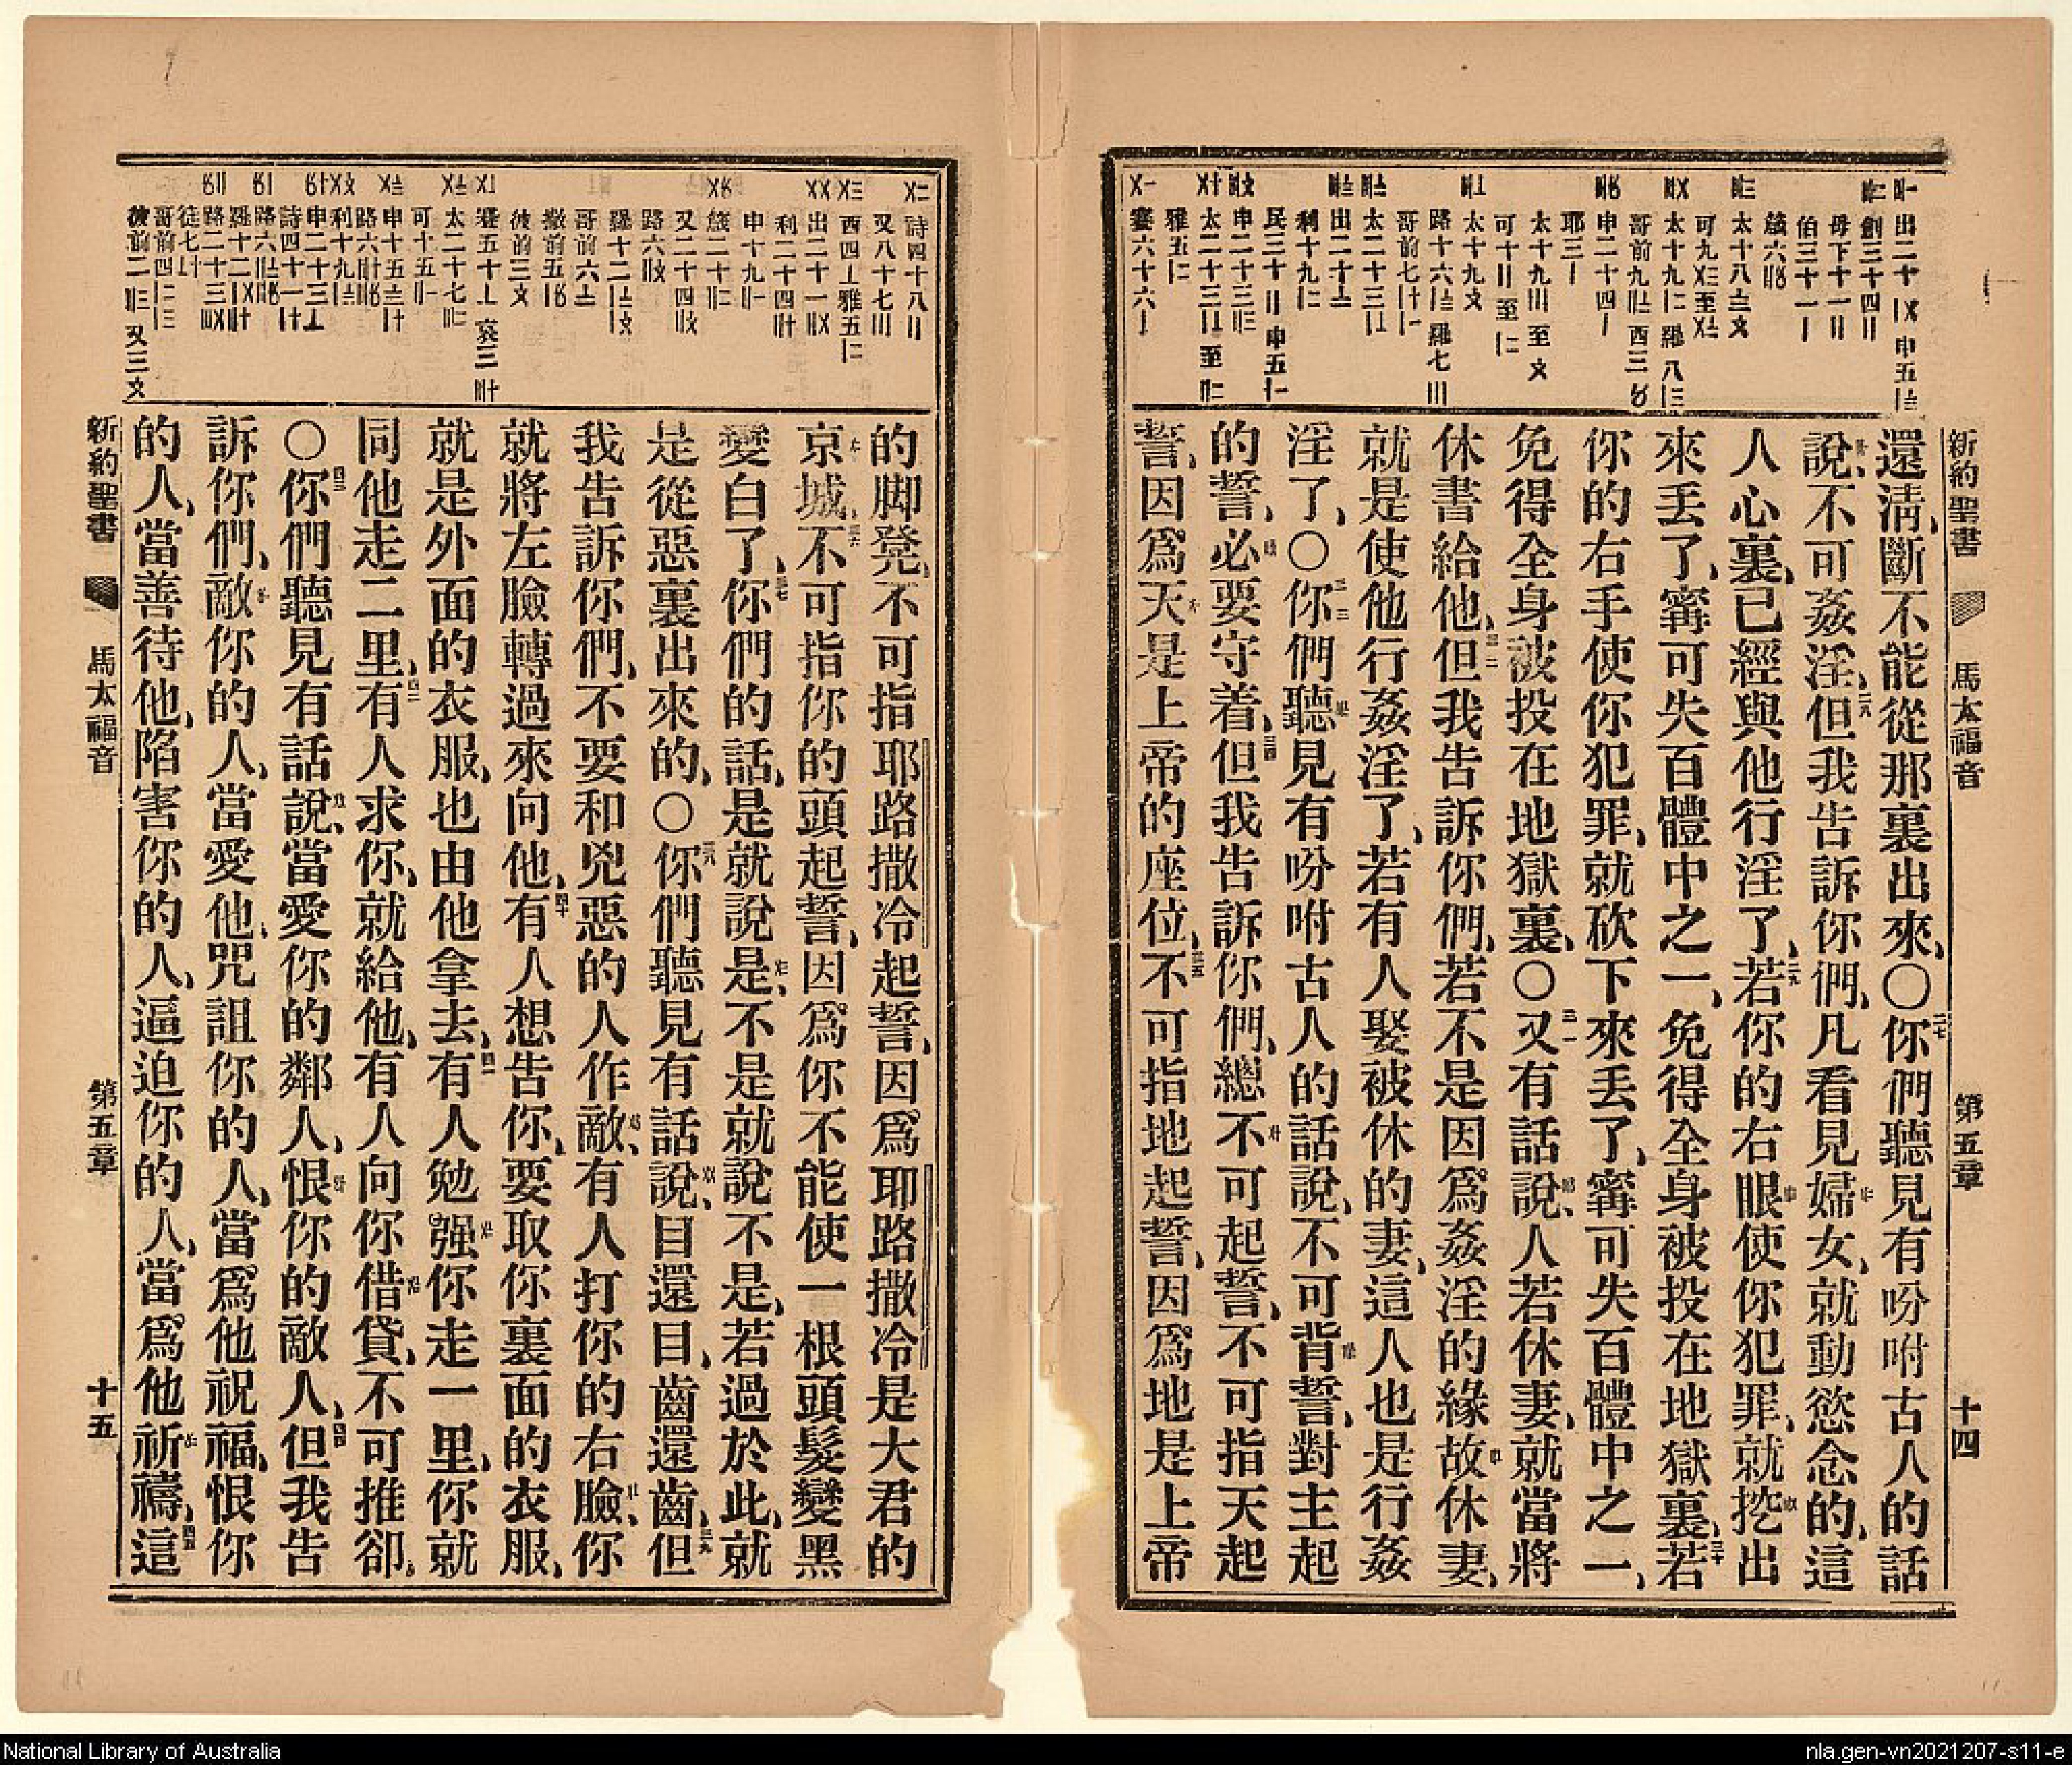 新約聖書
馬太福音
第五章
十四
還清、斷不能從那裏出來、〇你們聽見有吩咐古人的話
說、不可姦淫、但我告訴你們、凡看見婦女、就動慾念的、這
人心裏、已經與他行淫了、若你的右眼使你犯罪、就挖出
來丟了、寧可失百體中之一、免得全身被投在地獄裏、若
你的右手使你犯罪、就砍下來丟了、寧可失百體中之一、
免得全身被投在地獄裏、〇又有話說、人若休妻、就當將
休書給他、但我告訴你們、若不是因爲姦淫的緣故休妻、
就是使他行姦淫了、若有人娶被休的妻、這人也是行姦
淫了、〇你們聽見有吩咐古人的話說、不可背誓、對主起
的誓、必要守着、但我告訴你們、總不可起誓、不可指天起
誓、因爲天是上帝的座位、不可指地起誓、因爲地是上帝
的脚凳、不可指耶路撒冷起誓、因爲耶路撒冷是大君的
京城、不可指你的頭起誓、因爲你不能使一根頭髮變黑
變白了、你們的話、是就說是、不是就說不是、若過於此、就
是從惡裏出來的、〇你們聽見有話說、目還目、齒還齒、但
我告訴你們、不要和兇惡的人作敵、有人打你的右臉、你
就將左臉轉過來向他、有人想告你、要取你裏面的衣服、
就是外面的衣服、也由他拿去、有人勉强你走一里、你就
同他走二里、有人求你、就給他、有人向你借貸、不可推卻、
〇你們聽見有話說、當愛你的鄰人、恨你的敵人、但我告
訴你們、敵你的人、當愛他、咒詛你的人、當爲他祝福、恨你
的人、當善待他、陷害你的人、逼迫你的人、當爲他祈禱、這
新約聖書
馬太福音
第五章
十五
National Library of Australia
nla.gen-vn2021207-s11-e